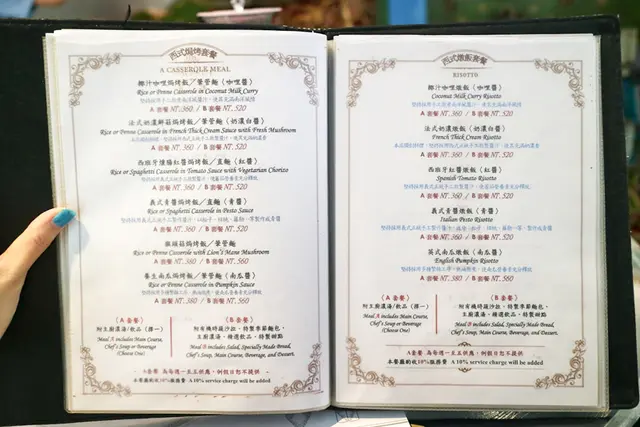 西式焗烤套餐
A CASSEROLE MEAL
椰汁咖哩焗烤飯／筆管麵（咖哩醬）
Rice or Penne Casserole in Coconut Milk Curry
A 套餐 NT.360 / B 套餐 NT.520
法式奶濃鮮菇焗烤飯／筆管麵（奶濃白醬）
Rice or Penne Casserole in French Thick Cream Sauce with Fresh Mushroom
A 套餐 NT.360 / B 套餐 NT.520
西班牙燻腸紅醬焗烤飯／直麵（紅醬）
Rice or Spaghetti Casserole in Tomato Sauce with Vegetarian Chorizo
A 套餐 NT.360 / B 套餐 NT.520
義式青醬焗烤飯／直麵（青醬）
Rice or Spaghetti Casserole in Pesto Sauce
A 套餐 NT.360 / B 套餐 NT.520
猴頭菇焗烤飯／筆管麵
Rice or Penne Casserole with Lion's Mane Mushroom
A 套餐 NT.380 / B 套餐 NT.560
養生南瓜焗烤飯／筆管麵（南瓜醬）
Rice or Penne Casserole in Pumpkin Sauce
A 套餐 NT.380 / B 套餐 NT.560
（A 套餐）
附主廚濃湯/飲品（擇一）
Meal A includes Main Course,
Chef's Soup or Beverage
(Choose One)
（B 套餐）
附有機時蔬沙拉，特製季節麵包，
主廚濃湯，精選飲品，特製甜點
Meal B includes Salad, Specially Made Bread,
Chef's Soup, Main Course, Beverage, and Dessert.
A套餐 為每週一至五供應，例假日恕不提供
本餐廳酌收10%服務費 A 10% service charge will be added
西式燉飯套餐
RISOTTO
椰汁咖哩燉飯（咖哩醬）
Coconut Milk Curry Risotto
A 套餐 NT.360 / B 套餐 NT.520
法式奶濃燉飯（奶濃白醬）
French Thick Cream Risotto
A 套餐 NT.360 / B 套餐 NT.520
西班牙紅醬燉飯（紅醬）
Spanish Tomato Risotto
A 套餐 NT.360 / B 套餐 NT.520
義式青醬燉飯（青醬）
Italian Pesto Risotto
A 套餐 NT.360 / B 套餐 NT.520
英式南瓜燉飯（南瓜醬）
English Pumpkin Risotto
A 套餐 NT.380 / B 套餐 NT.560
（A 套餐）
附主廚濃湯/飲品（擇一）
Meal A includes Main Course,
Chef's Soup or Beverage
(Choose One)
（B 套餐）
附有機時蔬沙拉，特製季節麵包，
主廚濃湯，精選飲品，特製甜點
Meal B includes Salad, Specially Made Bread,
Chef's Soup, Main Course, Beverage, and Dessert.
A套餐 為每週一至五供應，例假日恕不提供
本餐廳酌收10%服務費 A 10% service charge will be added